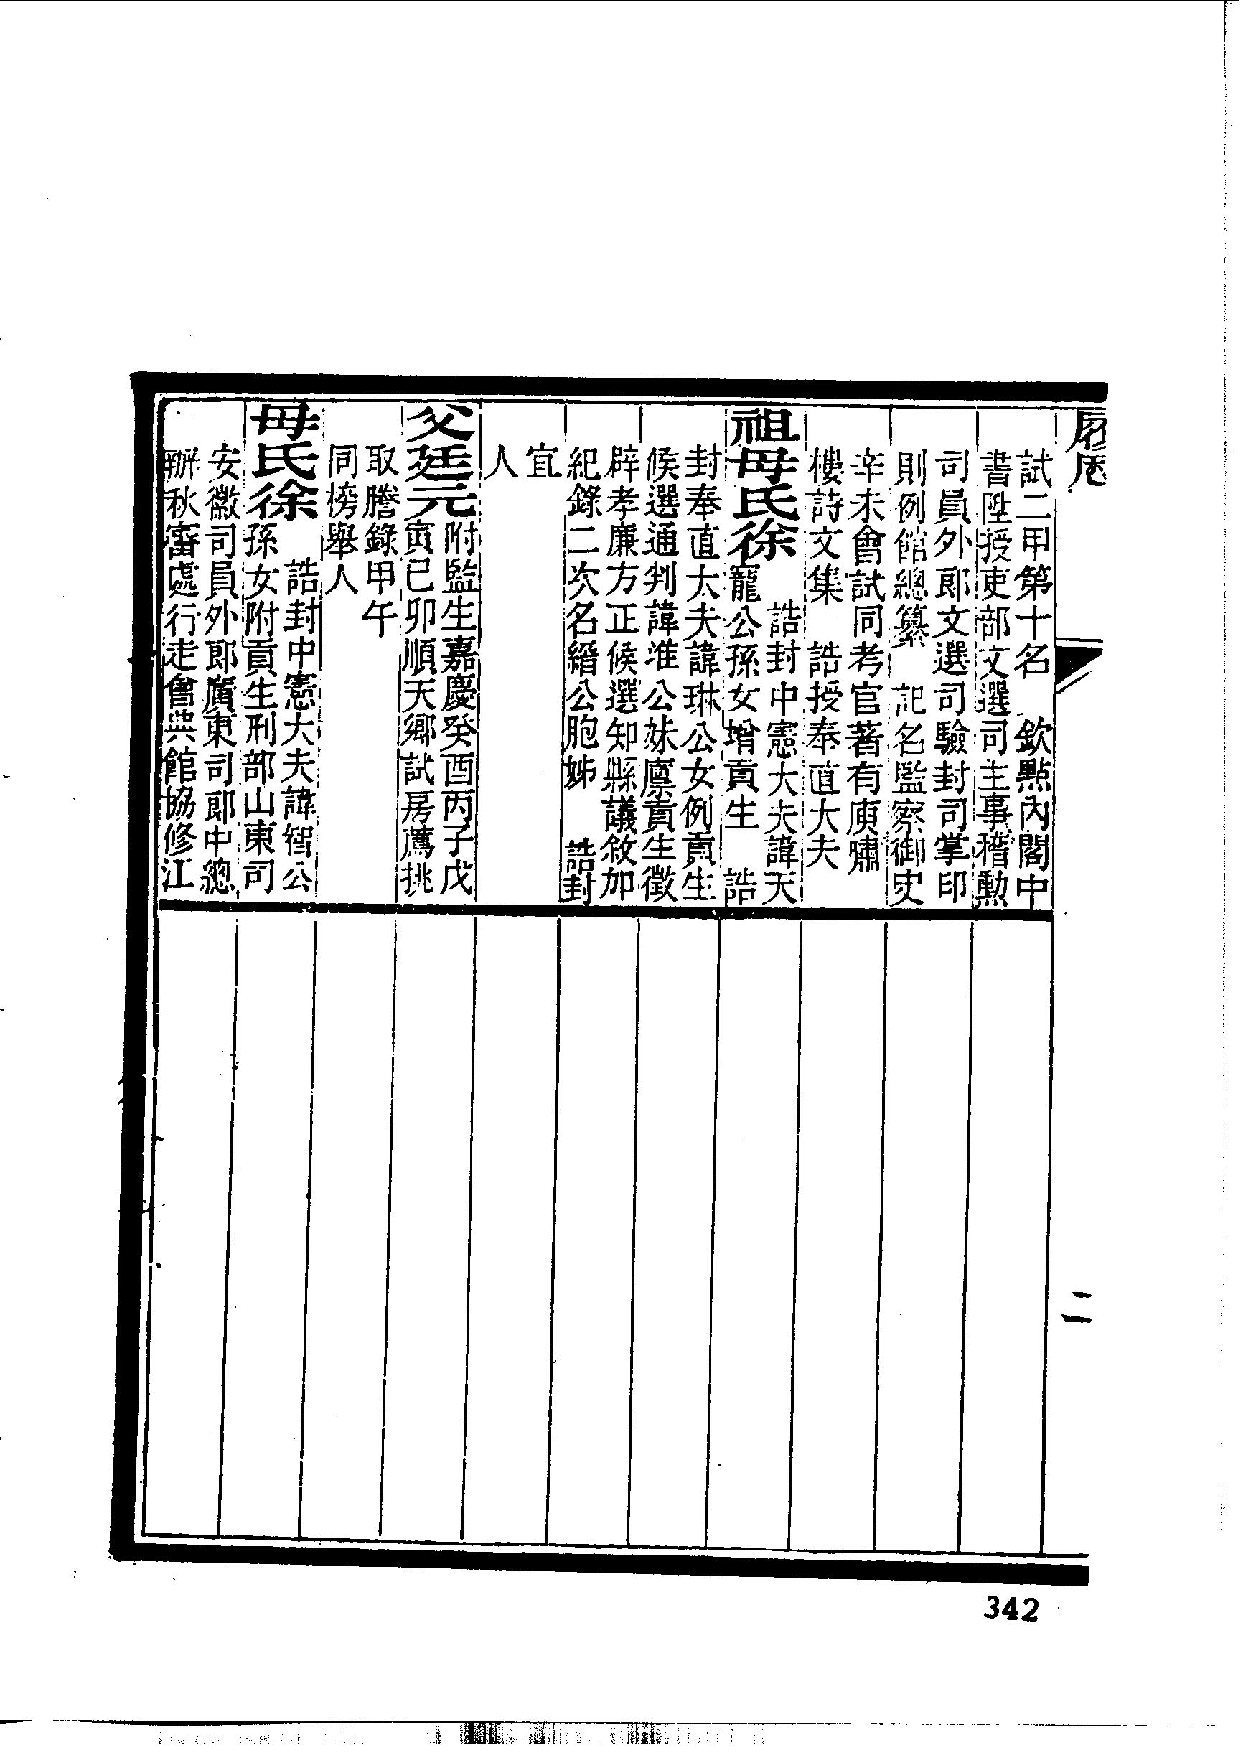 履歷
試二甲第十名 欽點內閣中
書陞授吏部文選司主事稽勳
司員外郎文選司驗封司掌印
則例館總纂 記名監察御史
辛未會試同考官著有庾嘯
樓詩文集 誥授奉直大夫
祖母氏徐
誥封中憲大夫諱天
寵公孫女增貢生 誥
封奉直大夫諱琳公女例貢生
候選通判諱淮公妹廩貢生徵
辟孝廉方正候選知縣議敘加
紀錄二次名縉公胞姊 誥封
宜
人
父廷元
附監生嘉慶癸酉丙子戊
寅己卯順天鄉試房薦挑
取謄錄甲午
同榜舉人
母氏徐
誥封中憲大夫諱智公
孫女附貢生刑部山東司
安徽司員外郎廣東司郎中總
辦秋審處行走會典館協修江
二
342